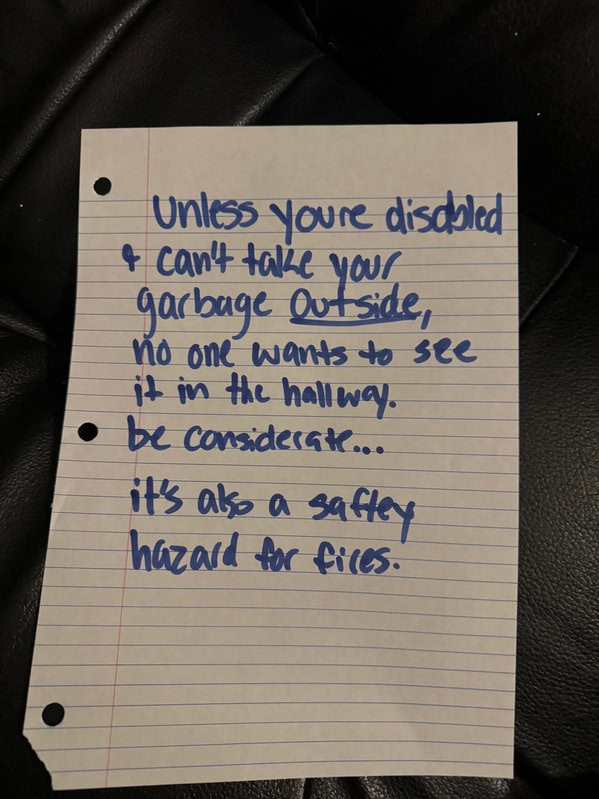 Unless youre disabled
& can't take your
garbage outside,
no one wants to see
it in the hallway.
be considerate...
it's also a saftey
hazard for fires.